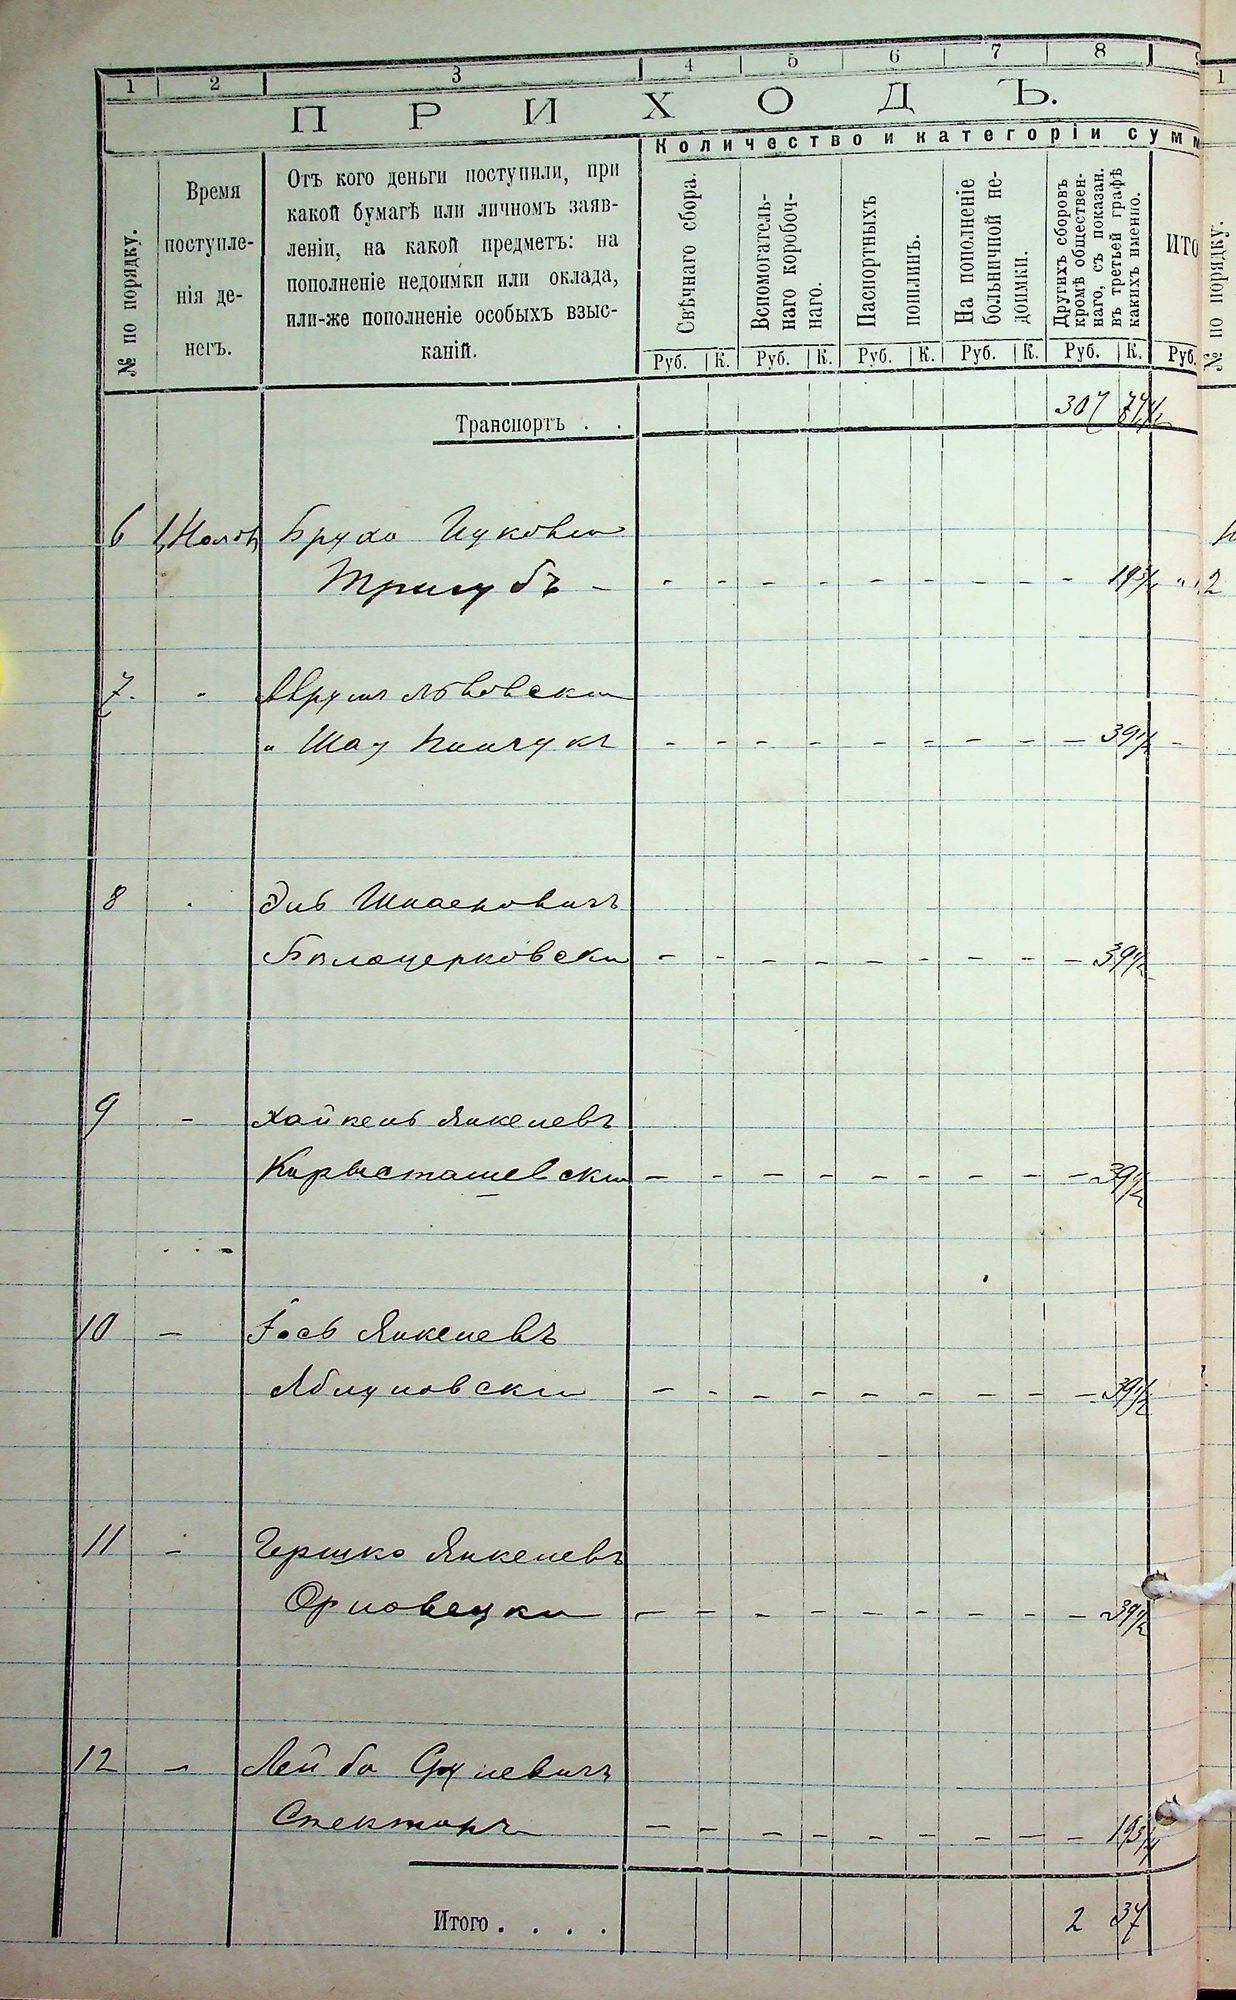 1 2 3 4 5 6 7 8
ПРИХОДЪ.
Количество и категоріи сумм
№ по порядку.
Время поступле-
нія де-
негъ.
Отъ кого деньги поступили, при
какой бумагѣ или личномъ заяв-
леніи, на какой предметъ: на
пополненіе недоимки или оклада,
или-же пополненіе особыхъ взыс-
каній.
Свѣчнаго сбора.
Вспомогатель-
наго коробоч-
наго.
Паспортныхъ
пошлинъ.
На пополненіе
больничной не-
доимки.
Другихъ сборовъ
кромѣ обществен-
наго, съ показан.
въ третьей графѣ
какихъ именно.
ИТО
№ по порядку.
Руб. К. Руб. К. Руб. К. Руб. К. Руб. К. Руб.
Транспортъ . . 307
6
Тригубъ - - - - - - - - - - 19 3/4
7.
" Шая Пинчукъ - - - - - - - - - 39 1/2
8
Бѣлоцерковски - - - - - - - - - 39 1/2
9 - Хайкель Янкелевъ
- - - - - - - - - 39 1/2
10 - Іось Янкелевъ
Яблуновски - - - - - - - - - 39 1/2
11 - Гершко Янкелевъ
- - - - - - - - - 39 1/2
12 - Лейба
Спекторъ - - - - - - - - - 19 3/4
Итого . . . . 2 37